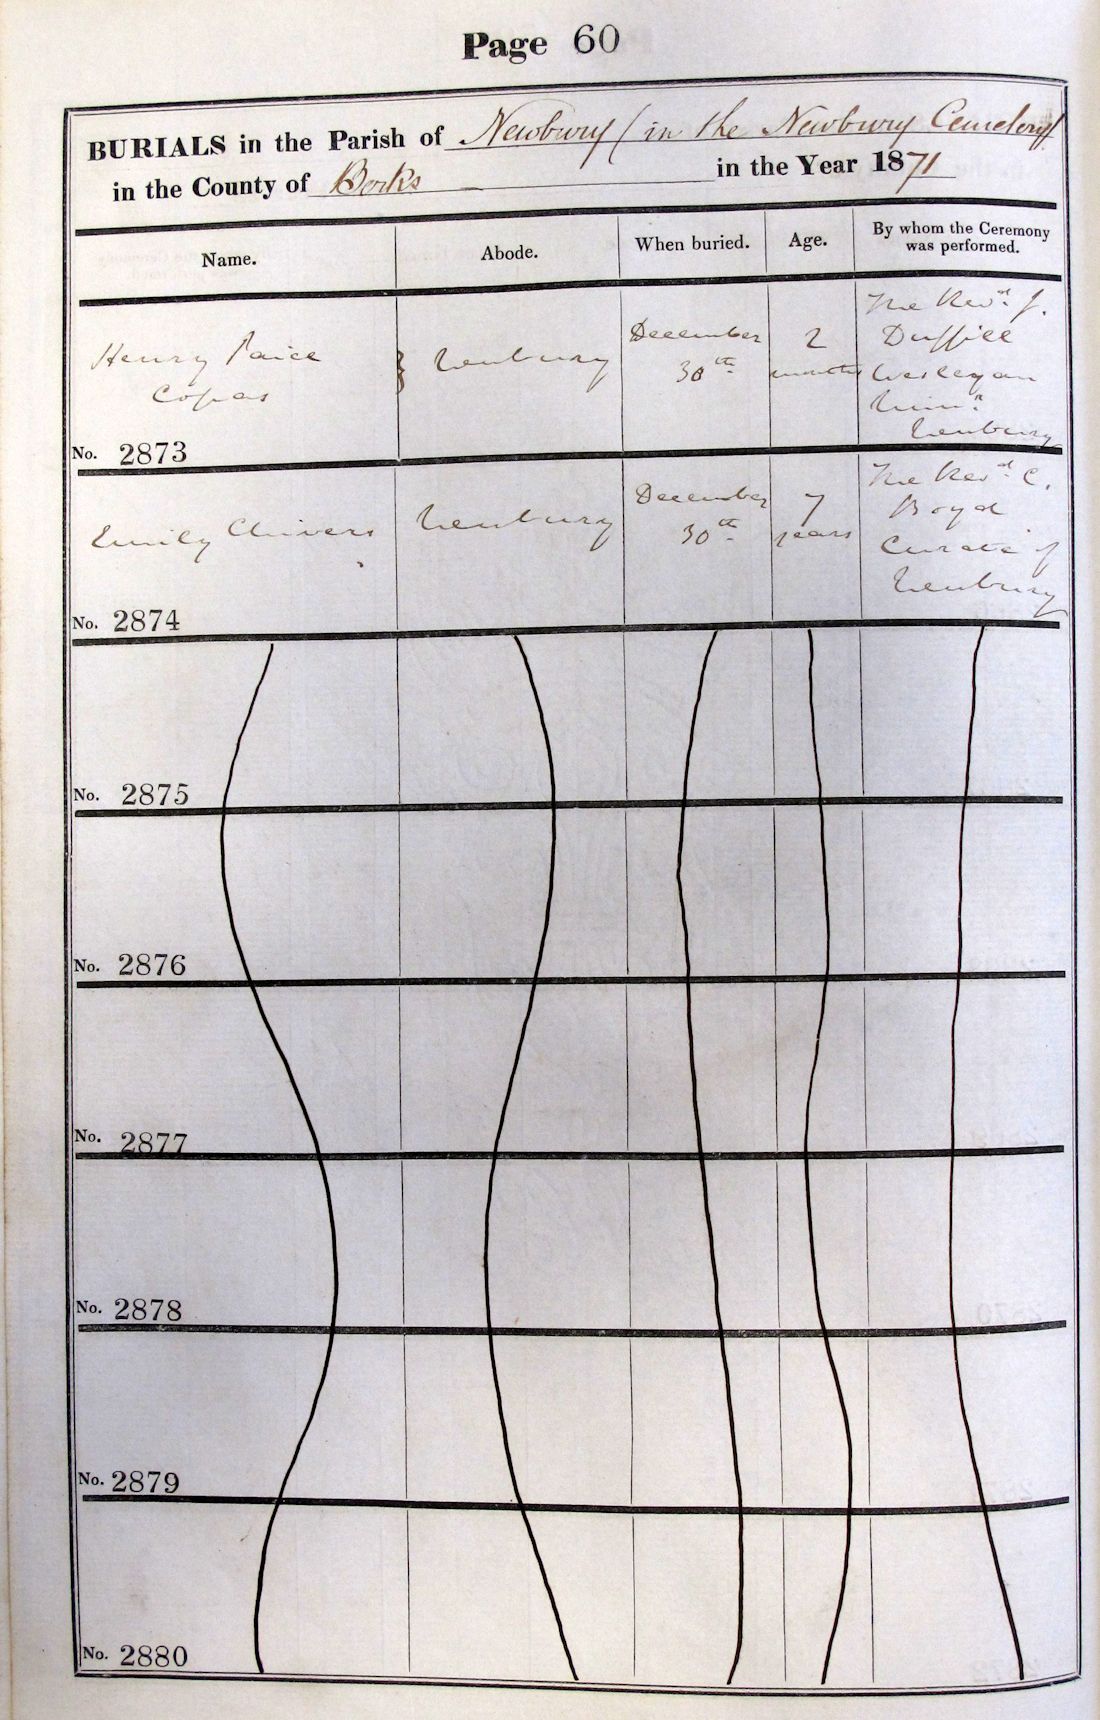 Page 60
BURIALS in the Parish of Newbury (in the Newbury Cemetery
in the County of Berks in the Year 1871
Name. Abode. When buried. Age. By whom the Ceremony was performed.
Henry Paice Copas
Newbury
December 30th
2 months
The Revd. J.
Duffill
Wesleyan
Minr.
Newbury
No. 2873
Emily Chivers
Newbury
December 30th
7 years
The Revd. C.
Boyd
Curate of
Newbury
No. 2874
No. 2875
No. 2876
No. 2877
No. 2878
No. 2879
No. 2880